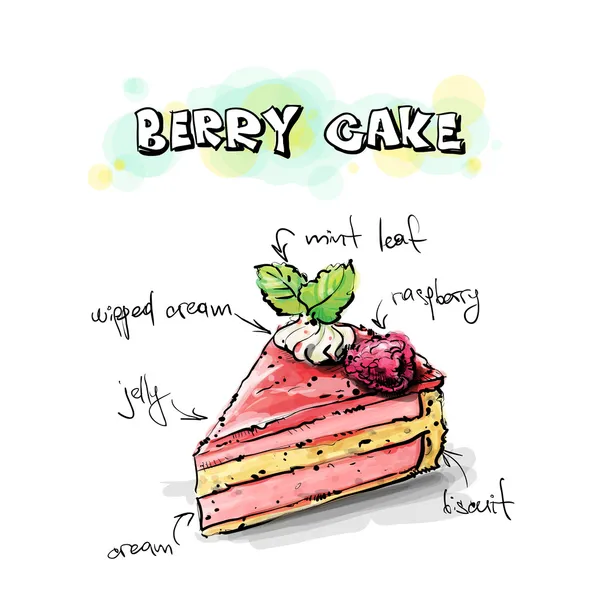 BERRY CAKE
mint leaf
wipped cream
raspberry
jelly
biscuit
cream